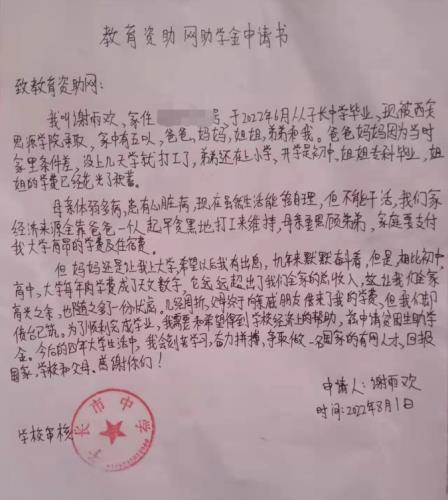 教育资助网助学金申请书
致教育资助网：
我叫谢雨欢，家住 号，于2022年6月从子长中学毕业，现被西安
思源学院录取，家中有五口人，爸爸，妈妈，姐姐，弟弟和我。爸爸妈妈因为当时
家里条件差，没上几天学就打工了，弟弟还在上小学，开学是初中，姐姐专科毕业，姐
姐的学费已经花光了积蓄。
母亲体弱多病，患有心脏病，现在虽然生活能够自理，但不能干活，我们家
经济来源全靠爸爸一个人起早贪黑地打工来维持，母亲要照顾弟弟，家庭要支付
我大学高昂的学费及住宿费。
但妈妈还是让我上大学，希望以后我有出息，九年来默默奋斗着，但是，相比初中，
高中，大学每年的学费成了天文数字，它远远超出了我们全家的总收入，这让我们全家
高兴之余，也随之多了一份忧愁。几经周折，父母终于向亲戚朋友借来了我的学费，但我们却
债台已筑。为了顺利完成学业，我需要和希望得到学校经济上的帮助，故申请贫困生助学
金。今后的四年大学生活中，我会刻苦学习，奋力拼搏，争取做一名国家的有用人才，回报
国家，学校和父母。感谢你们！
申请人：谢雨欢
时间：2022年8月1日
学校审核
长市中学